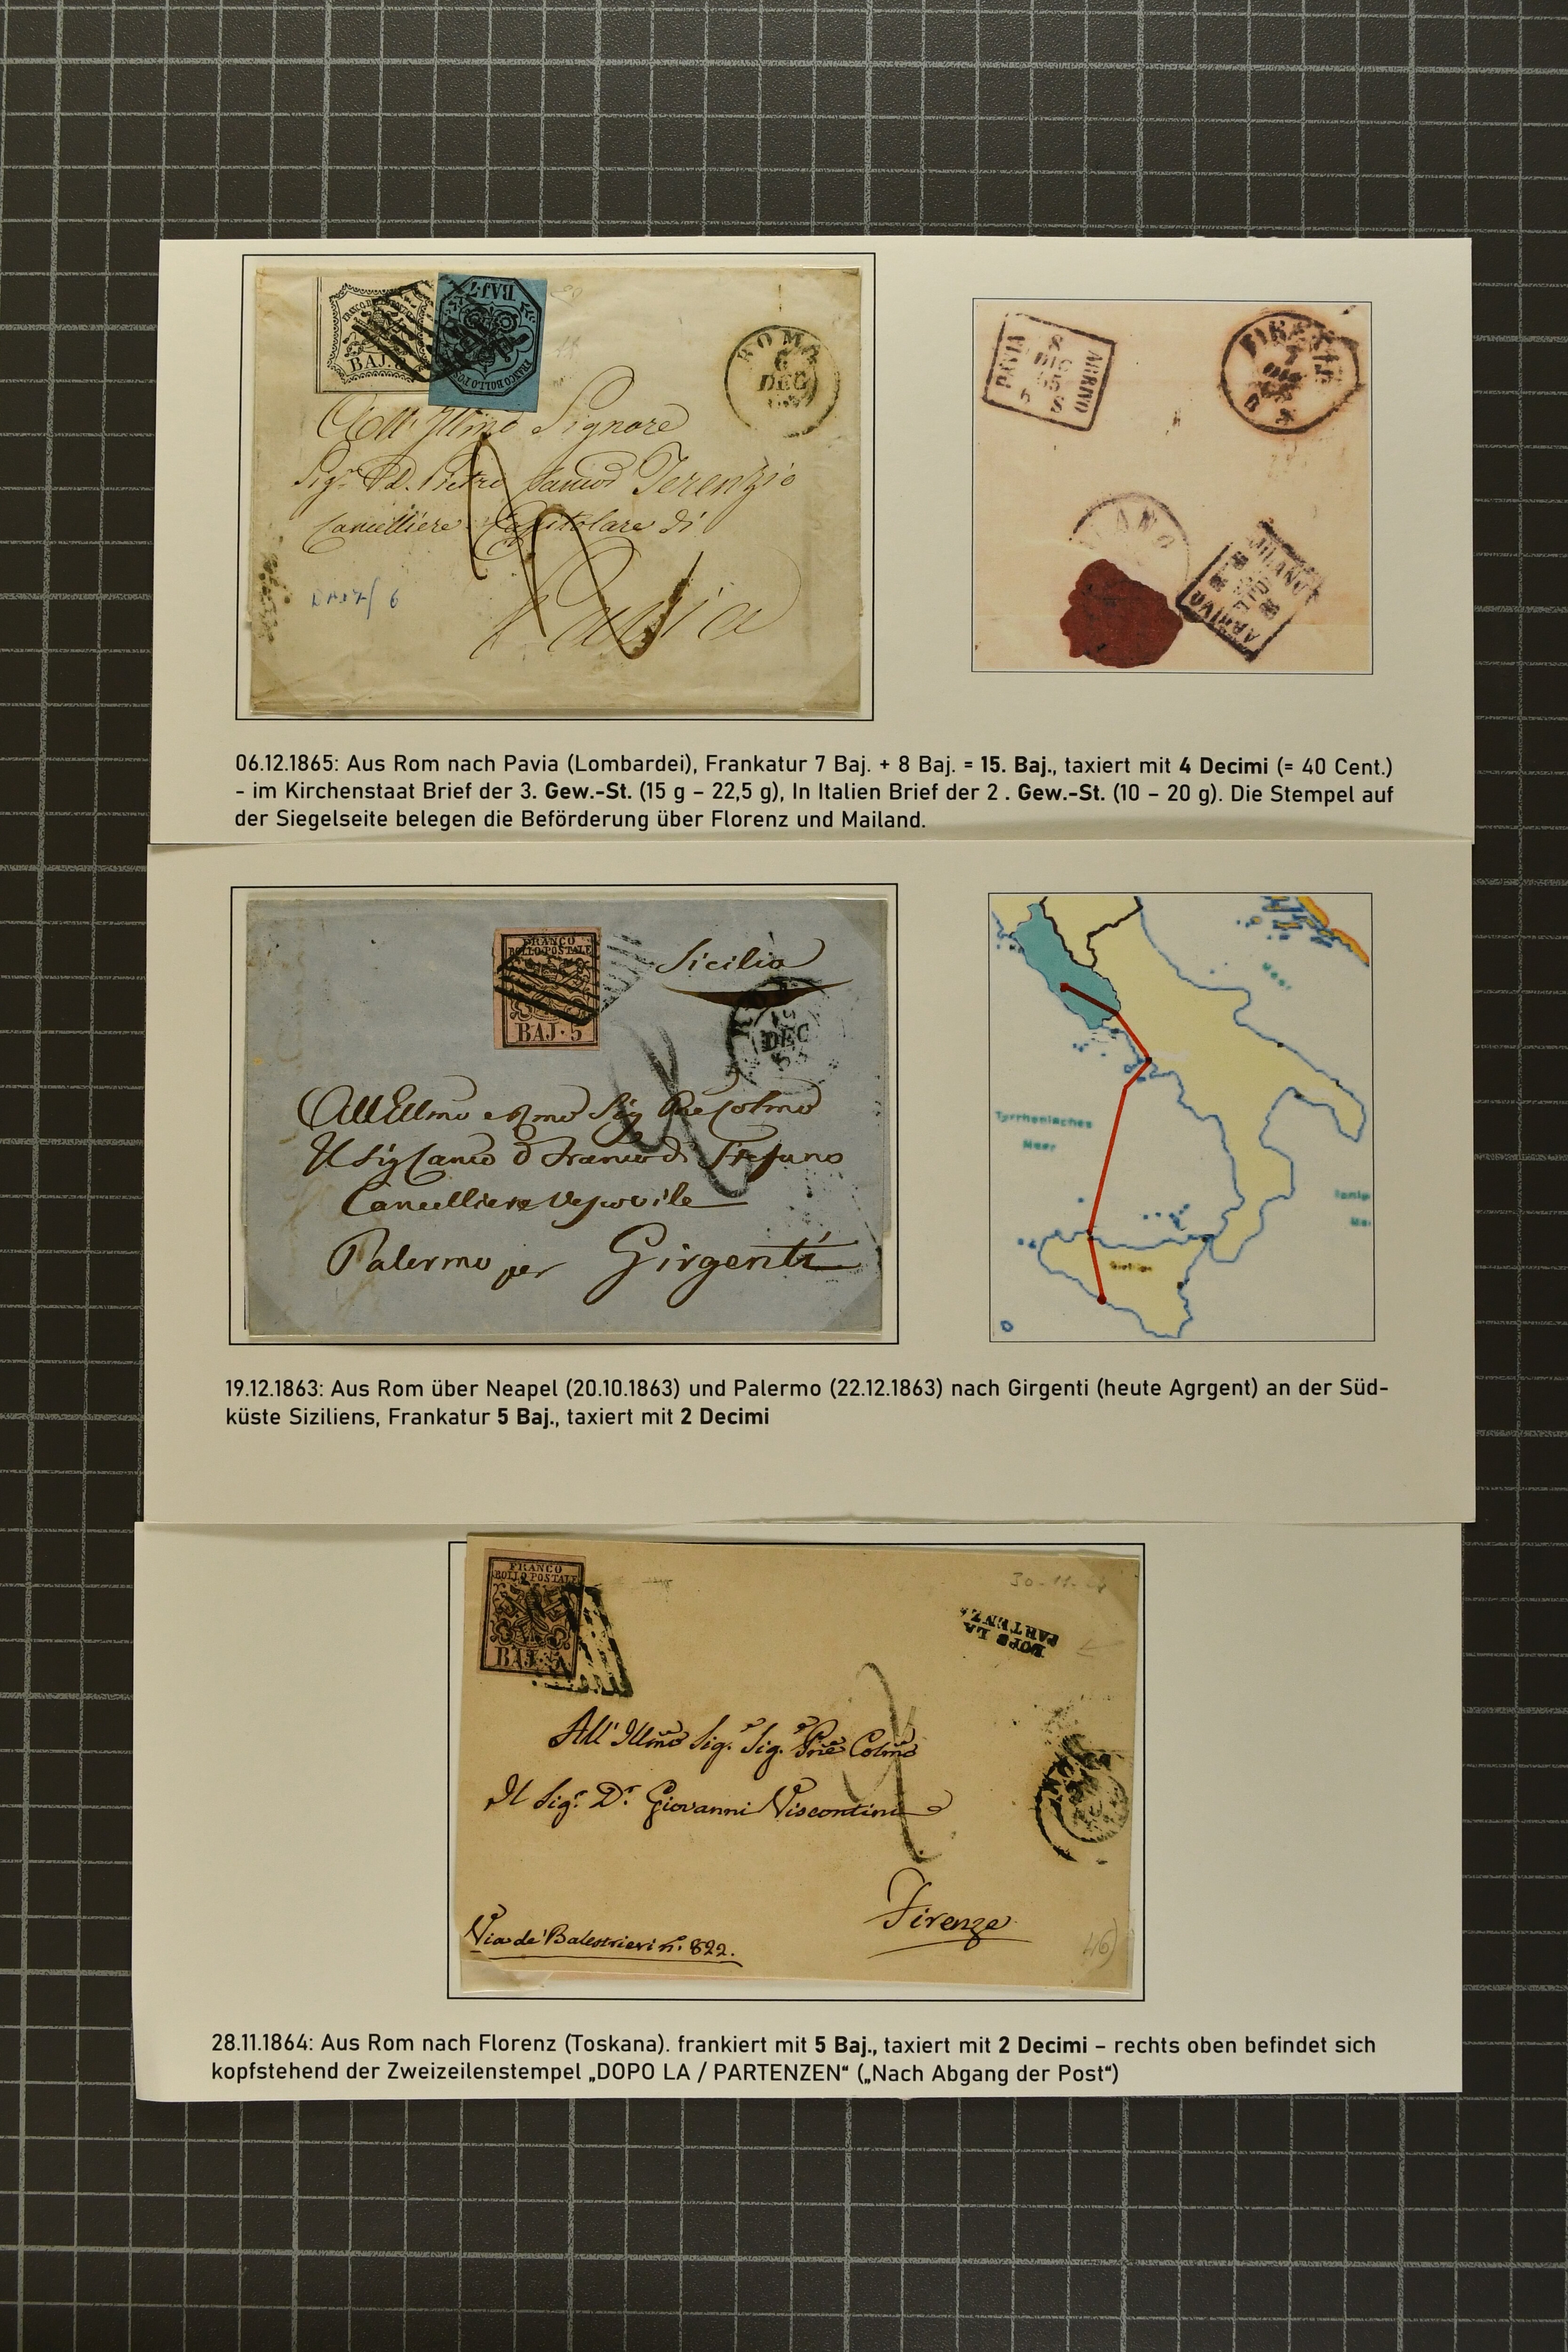 FRANCO BOLLO POSTALE
BAJ. 8
BAJ. 7
FRANCO BOLLO POSTALE
ROMA
6
DEC
All' Illmo Signore
Sigr D. Pietro Terenzio
Cancelliere Capitolare di
Pavia
6
PAVIA
8
DIC
65
ARRIVO
FIRENZE
7
DIC
65
MILANO
MILANO
ARRIVO
06.12.1865: Aus Rom nach Pavia (Lombardei), Frankatur 7 Baj. + 8 Baj. = 15. Baj., taxiert mit 4 Decimi (= 40 Cent.)
- im Kirchenstaat Brief der 3. Gew.-St. (15 g – 22,5 g), In Italien Brief der 2 . Gew.-St. (10 – 20 g). Die Stempel auf
der Siegelseite belegen die Beförderung über Florenz und Mailand.
FRANCO
BOLLO POSTALE
BAJ. 5
Sicilia
19
DEC
63
All Illmo e Rmo Sig Pne Colmo
Il Sig Canco D Franco di Stefano
Cancelliere Vescovile
Palermo per Girgenti
Meer
Tyrrhenisches
Meer
19.12.1863: Aus Rom über Neapel (20.10.1863) und Palermo (22.12.1863) nach Girgenti (heute Agrgent) an der Süd-
küste Siziliens, Frankatur 5 Baj., taxiert mit 2 Decimi
FRANCO
BOLLO POSTALE
BAJ. 5
30-11-64
DOPO LA
PARTENZA
All' Illmo Sig. Sig. Pne Colmo
Il Sigr Dr Giovanni Viscontini
Firenze
Via de' Balestrieri n. 822.
46)
28.11.1864: Aus Rom nach Florenz (Toskana). frankiert mit 5 Baj., taxiert mit 2 Decimi – rechts oben befindet sich
kopfstehend der Zweizeilenstempel „DOPO LA / PARTENZEN“ („Nach Abgang der Post“)